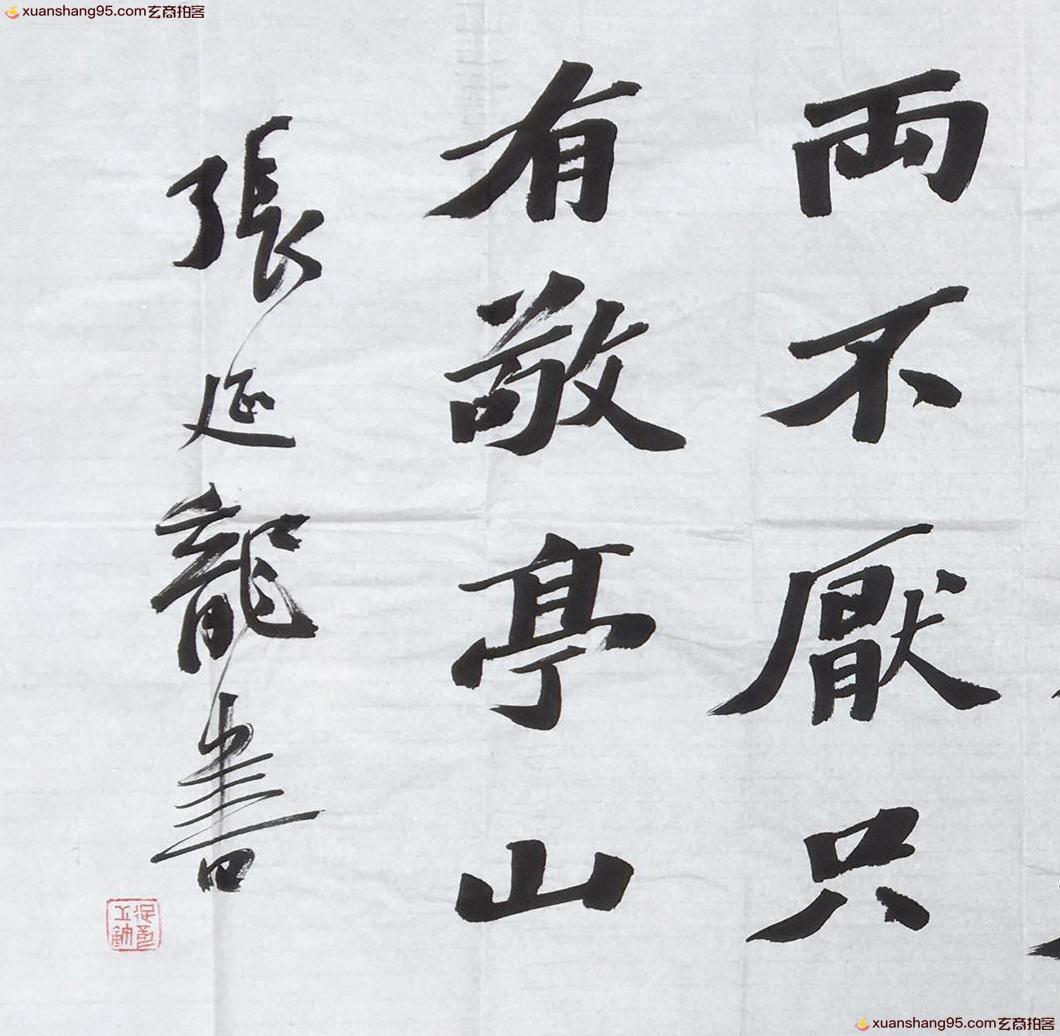 xuanshang95.com玄商拍客
両不厭只
有敬亭山
張延龍書
xuanshang95.com玄商拍客